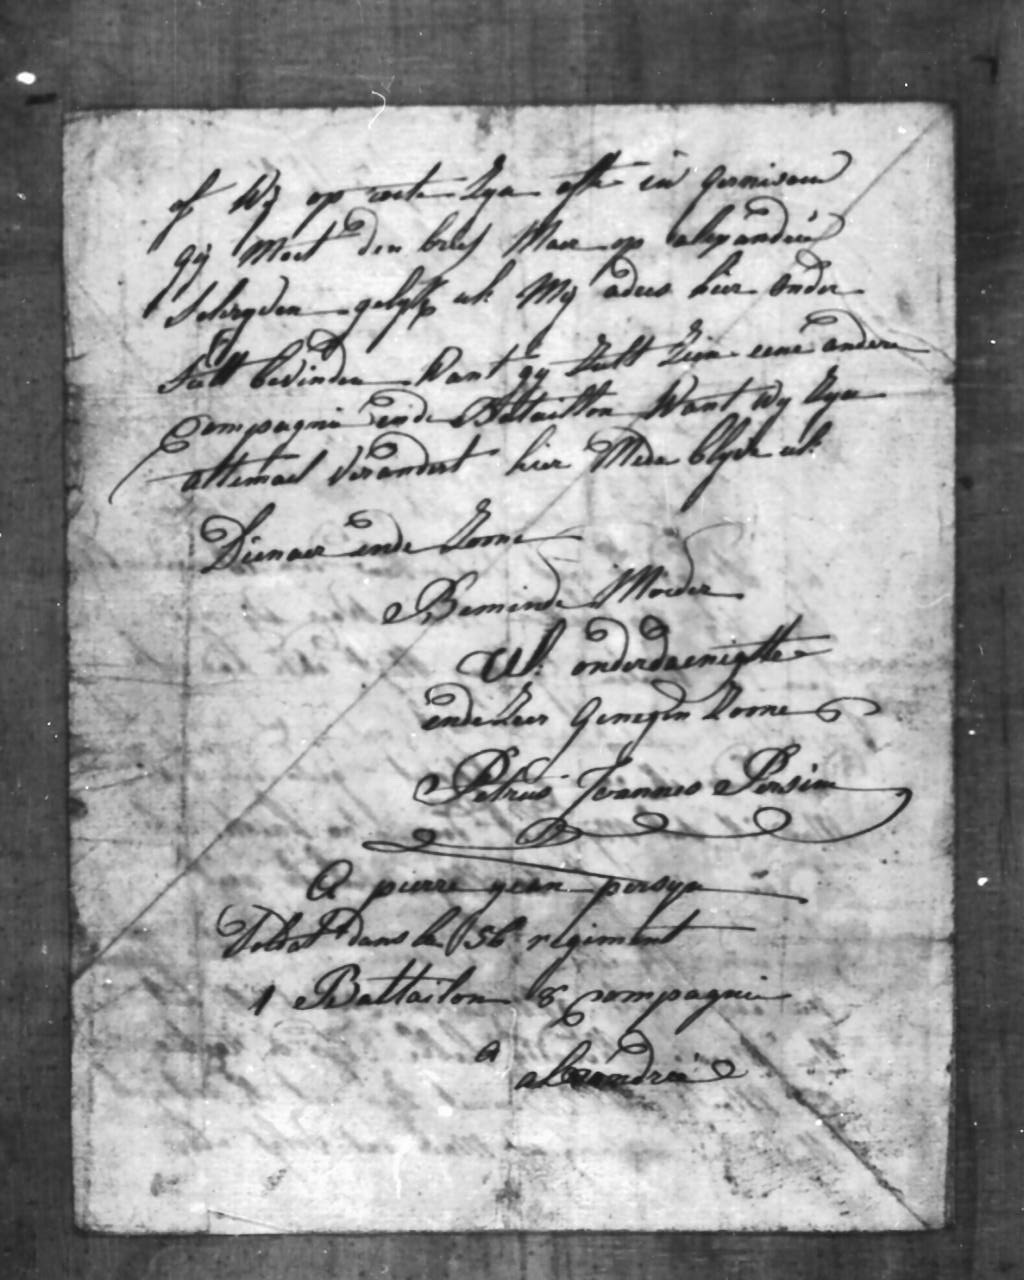 of Wy op rente Zyn ofte in Gernisoen
gy Moet den brief Maer op alexandrie
Schryven gelyk ul. My adres hier onder
Sult bevinden Want gy Zult Zien eene andere
Compagni ende Battaillon Want Wy Zyn
altemael verandert hier Mede blyve ul.
Dienaer ende Zoone
Beminde Moeder
Ul. onderdaenigste
ende Zeer Genegen Zoone
Petrus Joannes Persin
A pierre yean persyn
Soldat dans le 56 regiment
1 Battailon 8 compagnie
a
alexandrie